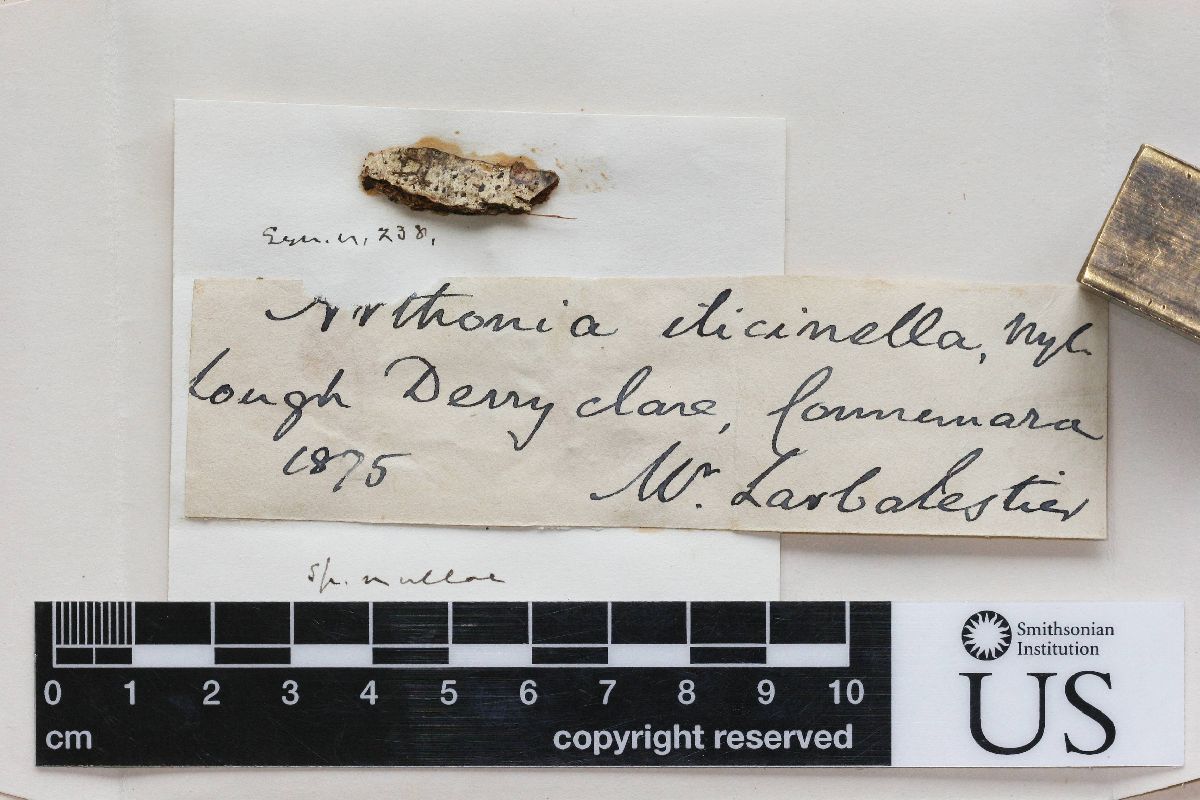 Exsic. n. 238.
Arthonia ilicinella, Nyl.
Lough Derryclare, Connemara
1875 Mr. Larbalestier
Sp. nullae
0 1 2 3 4 5 6 7 8 9 10
cm copyright reserved
Smithsonian
Institution
US